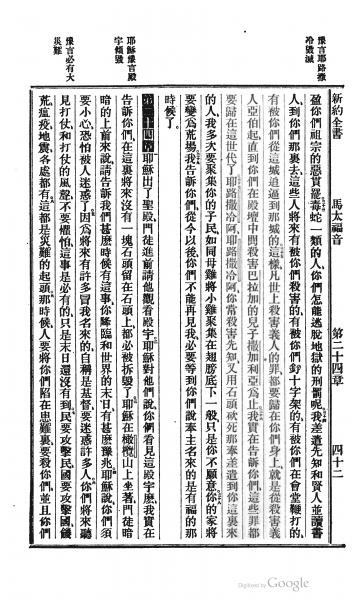 新約全書
馬太福音
第二十四章
四十二
豫言耶路撒
冷毀滅
盈你們祖宗的惡貫罷毒蛇一類的人你們怎能逃脫地獄的刑罰呢我差遣先知和賢人並讀書
人到你們那裏去這些人將來有被你們殺害的有被你們釘十字架的有被你們在會堂鞭打的
有被你們從這城追逼到那城的這樣凡世上殺害義人的罪都要歸在你們身上就是從殺害義
人亞伯起直到你們在殿壇中間殺害巴拉加的兒子撒加利亞為止我實在告訴你們這些罪都
要歸在這世代了耶路撒冷阿耶路撒冷阿你常殺害先知又用石頭打死那奉差遣到你這裏來
的人我多次要聚集你的子民如同母雞將小雞聚集在翅膀底下一般只是你不願意你的家將
要變為荒場我告訴你們從今以後你們不能再見我必要等到你們說奉主名來的是有福的那
時候了
耶穌豫言殿
宇傾毀
第二十四章耶穌出了聖殿門徒進前請他觀看殿宇耶穌對他們說你們看見這殿宇麼我實在
告訴你們在這裏將來沒有一塊石頭留在石頭上都必被拆毀了耶穌在橄欖山上坐著門徒暗
暗的上前來說請告訴我們甚麼時候有這事你降臨和世界的末日有甚麼豫兆耶穌說你們須
要小心恐怕被人迷惑了因為將來有許多冒我名來的自稱是基督要迷惑許多人你們將來聽
豫言必有大
災難
見打仗和打仗的風聲不要懼怕這事是必有的只是末日還沒有到民要攻擊民國要攻擊國饑
荒瘟疫地震各處都有這都是災難的起頭那時候人要將你們陷在患難裏要殺你們並且你們
Digitized by Google